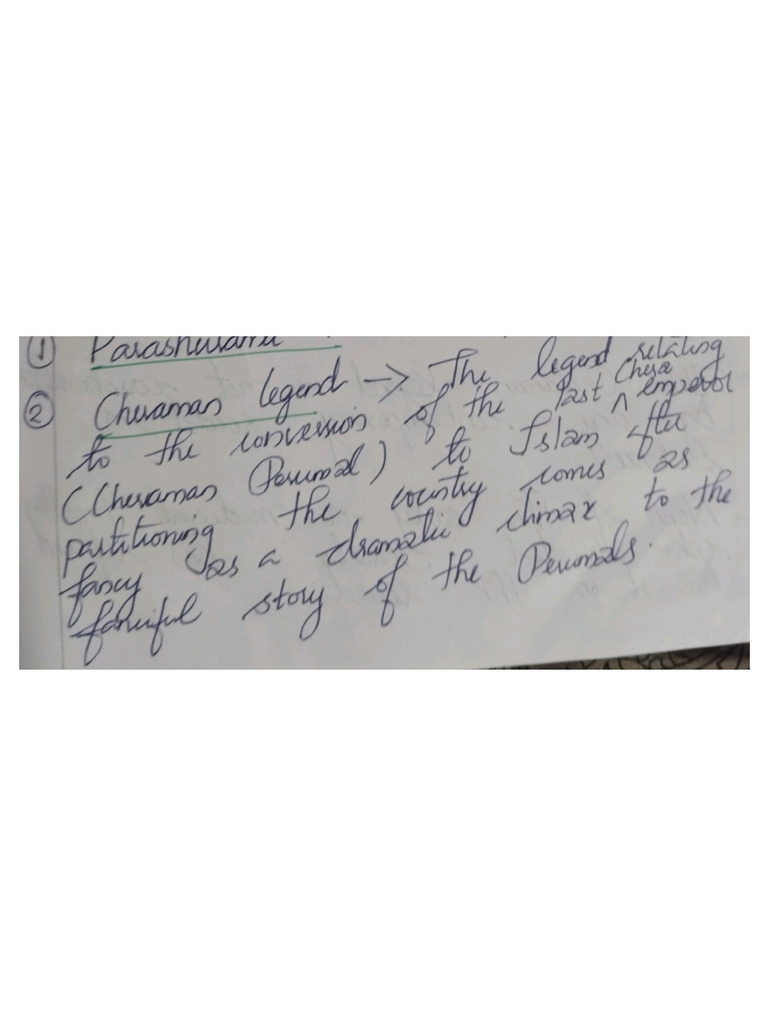 ① Parashurama
② Cheraman legend → The legend relating
to the conversion of the last ^ Chera emperor
(Cheraman Perumal) to Islam after
partitioning the country comes as
fancy as a dramatic climax to the
fanciful story of the Perumals.